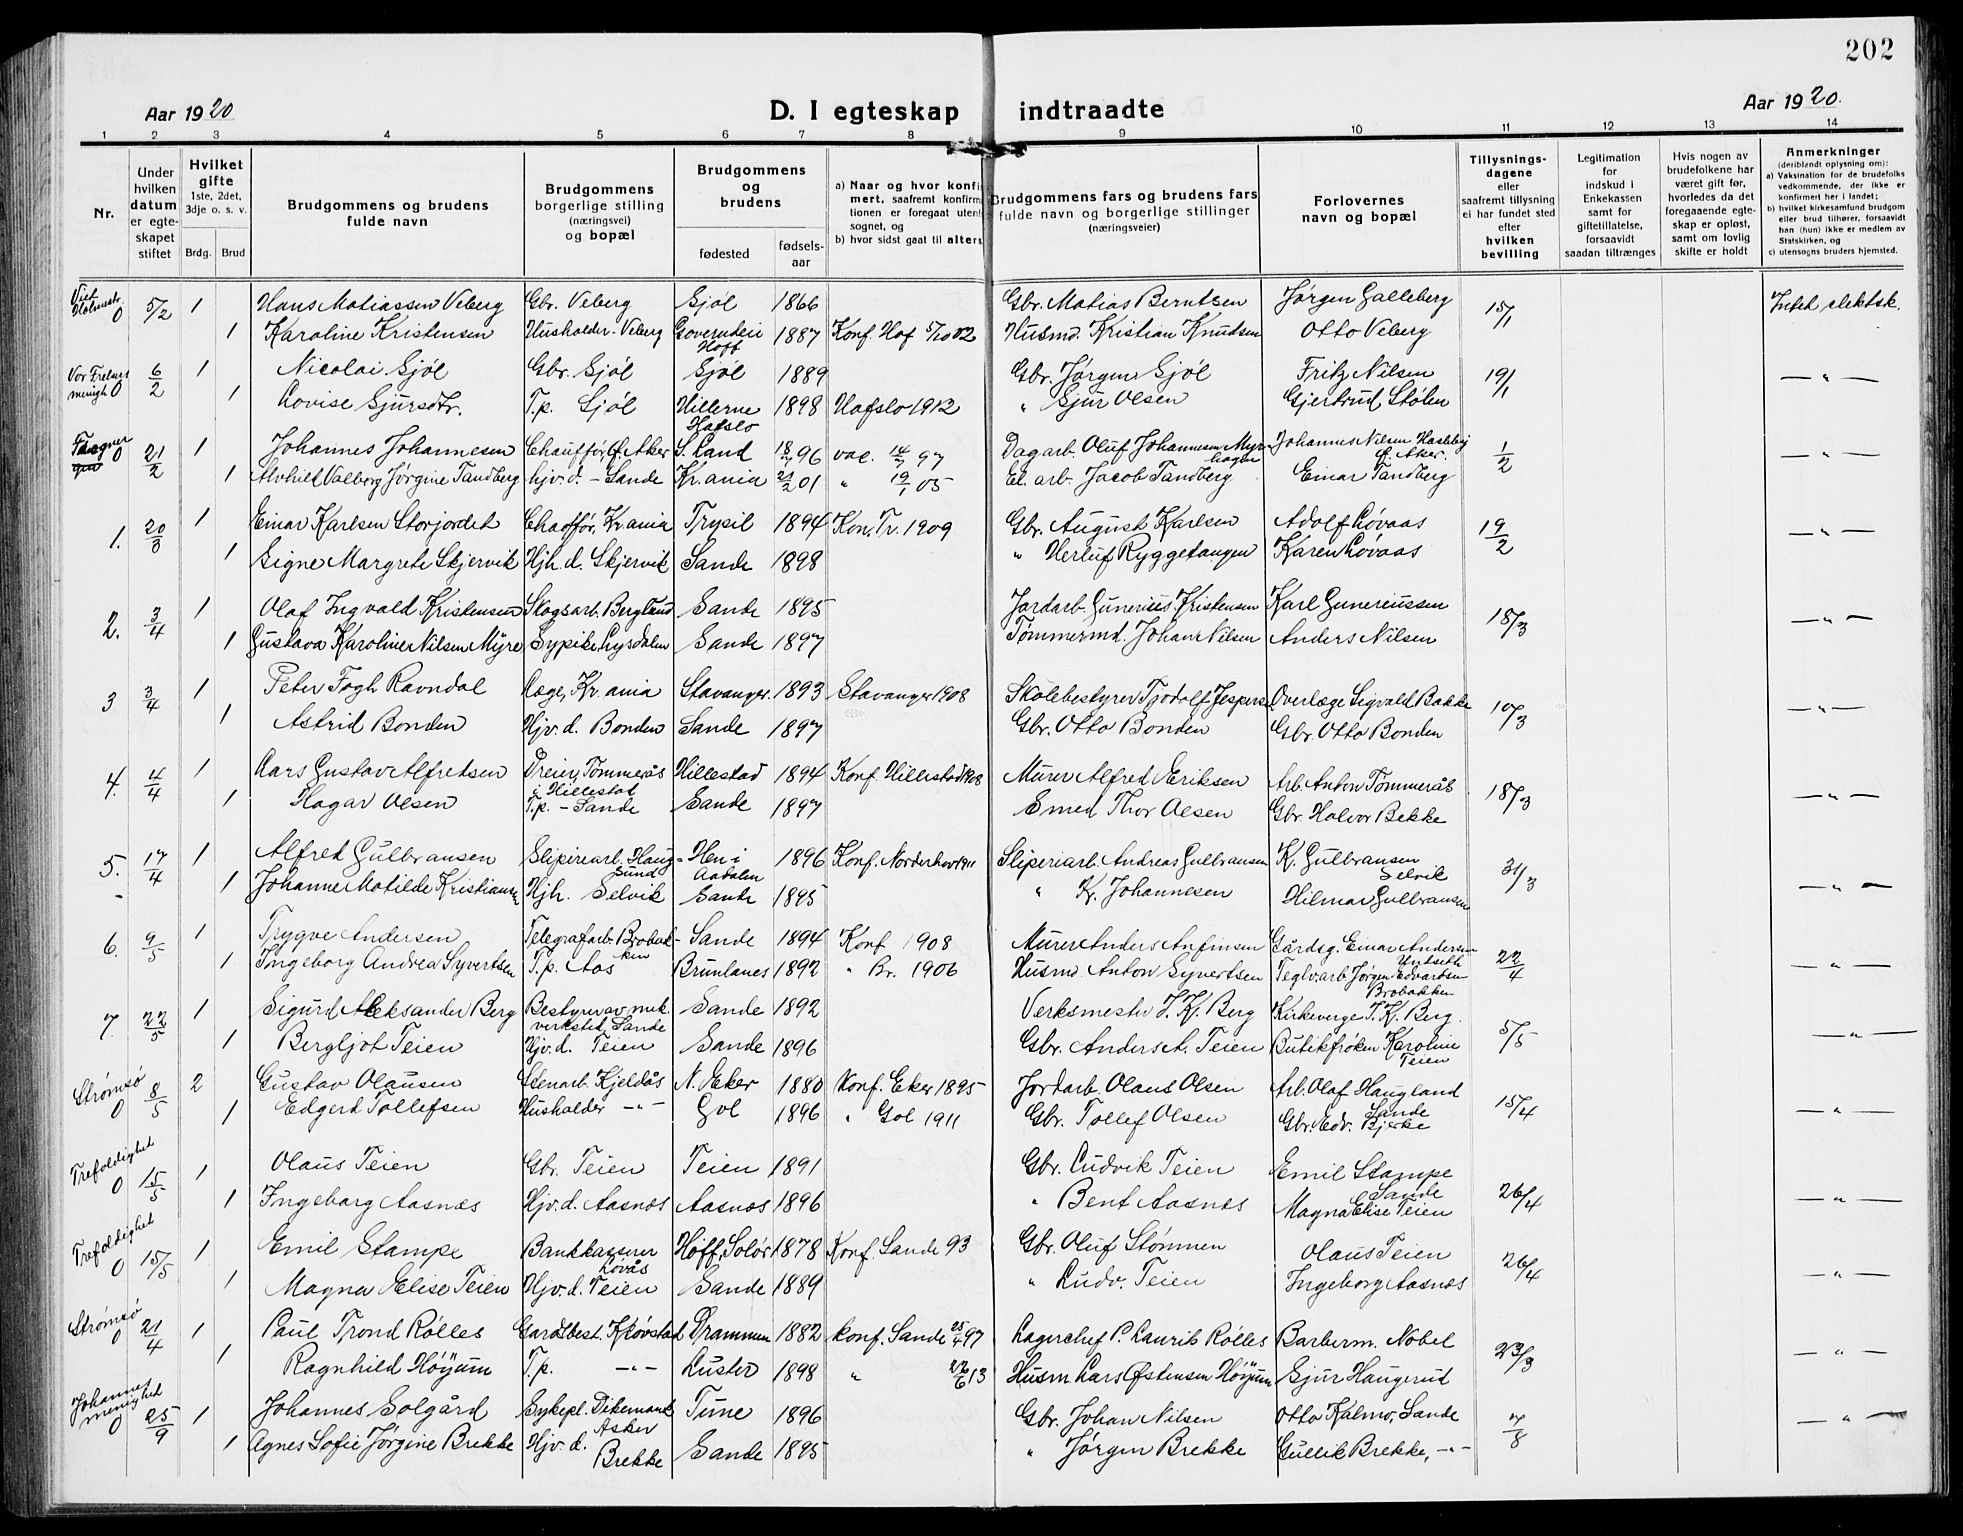 202
Aar 1920
D. I egteskap indtraadte
Aar 1920.
1 2 3 4 5 6 7 8 9 10 11 12 13 14
Nr.
Under hvilken datum er egteskapet stiftet
Hvilket gifte
1ste, 2det, 3dje o. s. v.
Brdg. Brud
Brudgommens og brudens fulde navn
Brudgommens borgerlige stilling (næringsvei) og bopæl
Brudgommens og brudens
fødested
fødselsaar
a) Naar og hvor konfi
mert, saafremt konfirm
tionen er foregaat utenf
sognet, og
b) hvor sidst gaat til alters
Brudgommens fars og brudens fars
fulde navn og borgerlige stillinger
(næringsveier)
Forlovernes navn og bopæl
Tillysningsdagene eller saafremt tillysning ei har fundet sted efter hvilken bevilling
Legitimation for indskud i Enkekassen samt for giftetillatelse, forsaavidt saadan tiltrænges
Hvis nogen av brudefolkene har været gift før, hvorledes da det foregaaende egteskap er opløst, samt om lovlig skifte er holdt
Anmerkninger
(deriblandt oplysning om):
a) Vaksination for de brudefolks vedkommende, der ikke er konfirmert her i landet;
b) hvilket kirkesamfund brudgom eller brud tilhører, forsaavidt han (hun) ikke er medlem av Statskirken, og
c) utensogns bruders hjemsted.
0 5/2 1 Hans Matiassen Veberg Gbr. Veberg Sjøl 1866 Gbr. Matias Berntsen Jørgen Galleberg 15/1 Intet slektsk.
1 Karoline Kristensen Husholder. Veberg Hoff 1887 Konf. Hof 5/10 02 Husmd. Kristian Knudsen Otto Veberg
Vor Frelsers menigh 0 6/2 1 Nicolai Sjøl Gbr. Sjøl Sjøl 1889 Gbr. Jørgen Sjøl Fritz Nilsen 19/1 — " —
1 Lovise Sjursdtr. T.p. Sjøl Hillerne Hafslo 1898 Hafslo 1912 " Sjur Olsen Gjertrud Stølen
0 21/2 1 Johannes Johannesen Chauffør, Ø. Aker S. Land 18/7 96 vac. 14/7 97 Dagarb. Oluf Johannesen Myrhagen Johannes Nilsen Hasleberg Ø. Aker. 1/2 — " —
1 Alvhild Valborg Jørgine Tandberg hjv. d. - Sande Kr.ania 21/2 01 " 19/1 05 El. arb. Jacob Tandberg Einar Tandberg
1. 20/3 1 Einar Karlsen Storjordet Chauffør, Kr.ania Trysil 1894 Kon. Tr. 1909 Gbr. August Karlsen Adolf Løvaas 19/2 — " —
1 Signe Margrete Skjervik Hjh. d. Skjervik Sande 1898 " Herluf Ryggetangen Karen Løvaas
2. 3/4 1 Olaf Ingvald Kristensen Skogsarb. Bergland Sande 1895 Jordarb. Gunerius Kristensen Karl Gunereiussen 18/3 — " —
1 Gustava Karoline Nilsen Myre Sypike Lysdalen Sande 1897 Tømmermd. Johan Nilsen Anders Nilsen
3 3/4 1 Peter Fogh Ravndal Læge, Kr.ania Stavanger. 1893 Stavanger 1908 Skolebestyrer Tjodolf Jespersen Overlæge Sigvald Bakke 10/3 — " —
1 Astrid Bonden Hjv. d. Bonden Sande 1897 Gbr. Otto Bonden Gbr. Otto Bonden
4. 4/4 1 Lars Gustav Alfredsen Dreier, Tømmerås i Hillestad Hillestad 1894 Konf. Hillestad 1908 Murer Alfred Eriksen Arb. Anton Tømmerås 18/3 — " —
1 Hagar Olsen T.p. - Sande Sande 1897 Smed Thor Olsen Gbr. Halvor Bekke
5. 17/4 1 Alfred Gulbransen Sliperiarb. Haugsund Hen i Aadalen 1896 Konf. Norderhov 1911 Sliperiarb. Andreas Gulbransen K. Gulbransen Selvik 31/3 — " —
1 Johanne Matilde Kristiansen Hjh. Selvik Sande 1895 " K. Johannesen Hilmar Gulbransen
6. 9/5 1 Trygve Andersen Telegrafarb. Brobakken Sande 1894 Konf 1908 Murer Anders Anfinsen Gårdsg. Einar Andersen 22/4 — " —
1 Ingeborg Andrea Syvertsen T.p. Aas Brunlanes 1892 " Br. 1906 Husmd. Anton Syvertsen Teglvarb Jørgen Edvardsen Brobakken
7. 22/5 1 Sigurd Aleksander Berg Bestyrer av mek. verksted, Sande Sande 1892 Verksmester J. K. Berg Kirkeverge J. K. Berg. 5/5 — " —
1 Bergljot Teien Hjv. d. Teien Sande 1896 Gbr. Anders A. Teien Butikfrøken Karoline Teien
Strømsø 0 8/5 2 Gustav Olausen Stenarb. Kjeldås N. Eker 1880 Konf. Eker 1895 Jordarb. Olaus Olsen Arb. Olaf Haugland Sande 15/4 — " —
1 Edgerd Tollefsen Husholder — " — Gol 1896 " Gol 1911 Gbr. Tollef Olsen Gbr. Edv. Bjerke
Trefoldighet 0 15/5 1 Olaus Teien Gbr. Teien Teien 1891 Gbr. Ludvik Teien Emil Stampe Sande 26/4 — " —
1 Ingeborg Aasnæs Hjv. d. Aasnæs Aasnæs 1896 " Bent Aasnæs Magna Elise Teien
Trefoldighet 0 15/5 1 Emil Stampe Bankkasserer Løvås Hoff, Solør 1878 Konf. Sande 93 Gbr. Oluf Stømnen Olaus Teien 26/4 — " —
1 Magna Elise Teien Hjv. d. Teien Sande 1889 " Ludv. Teien Ingeborg Aasnæs
Strømsø 0 21/4 1 Paul Trond Rølles Gardsbest. Kløvstad Drammen 1882 konf. Sande 25/4 97 Lagerchef P. Laurits Rølles Barberm. Nobel 23/3 — " —
1 Ragnhild Høyum T.p. — " — Luster 1898 " 22/6 13 Husm Lars Østensen Høyum Sjur Haugerud
Johannes menighet 0 25/9 1 Johannes Solgård Sykepl. Dikemark Asker Tune 1896 Gbr. Johan Nilsen Otto Kalmo, Sande 7/8 — " —
1 Agnes Sofie Jørgine Brekke Hjv. d. Brekke Sande 1895 " Jørgen Brekke Gullik Brekke, — " —